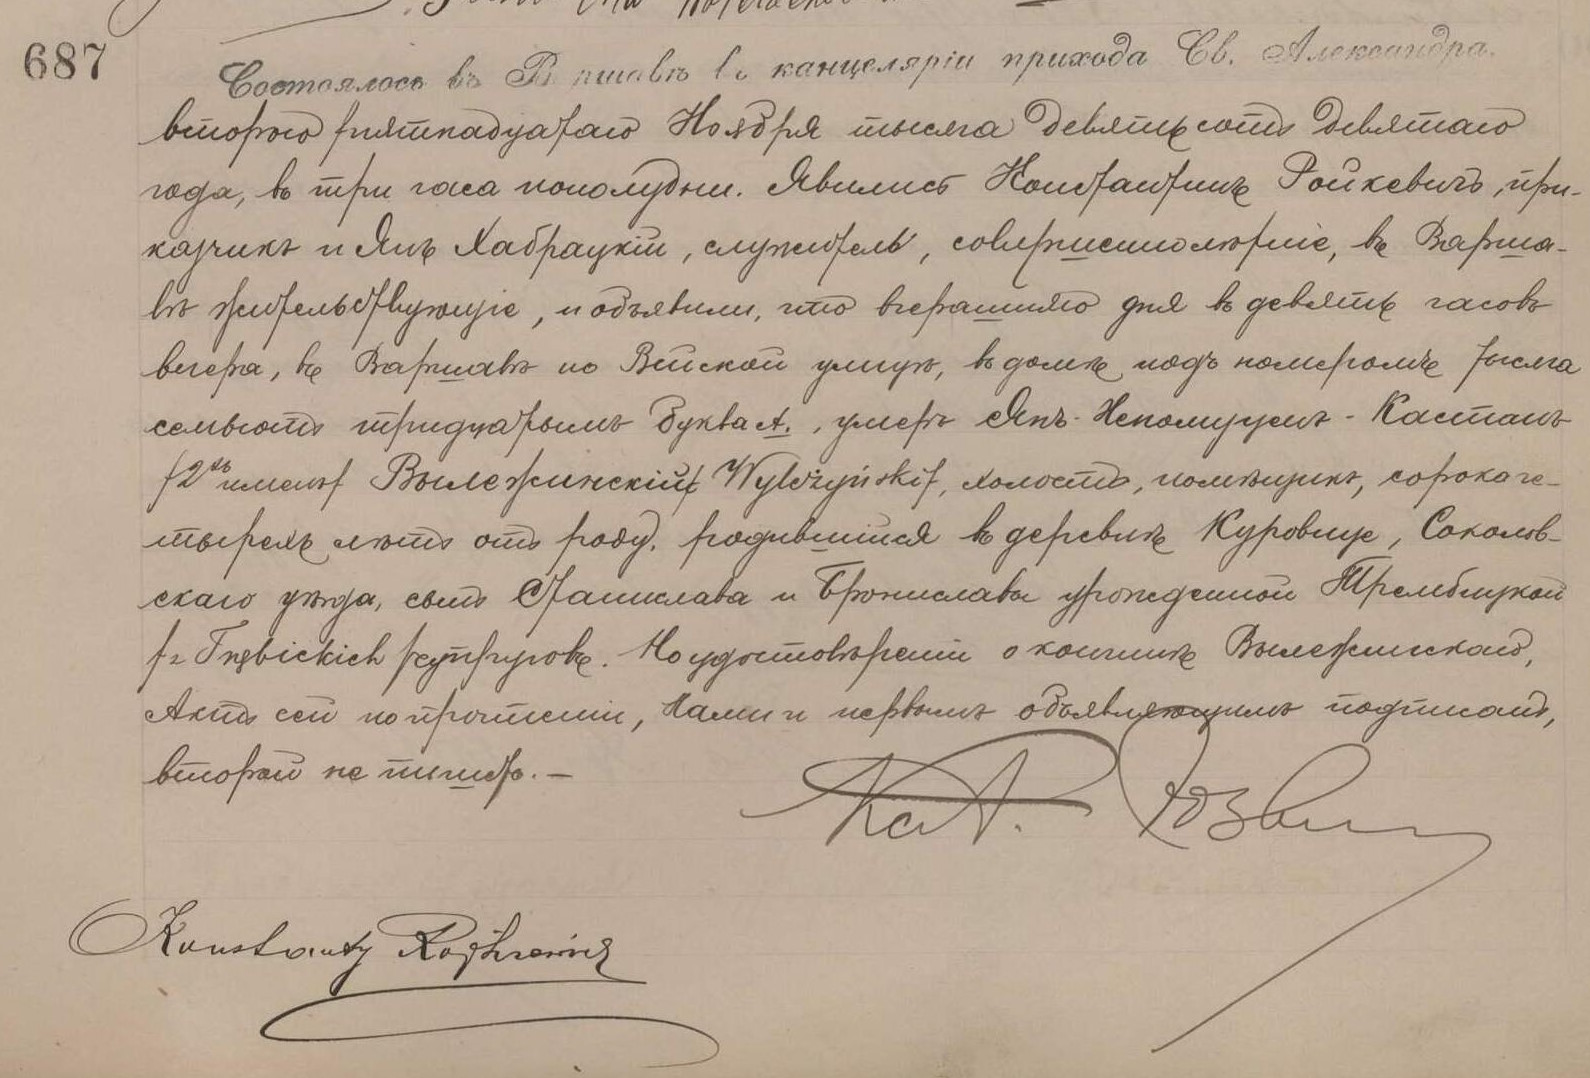 687
Состоялось въ Варшавѣ въ канцеляріи прихода Св. Александра.
второго /пятнадцатаго Ноября тысяча девятьсотъ девятаго
года, въ три часа пополудни. Явились Константинъ Ройкевичъ, при-
казчикъ и Янъ Хабрацкій, служитель, совершеннолѣтніе, въ Варша-
вѣ жительствующіе, и объявили, что вчерашняго дня въ девять часовъ
вечера, въ Варшавѣ по Вейской улицѣ, въ домѣ подъ номеромъ тысяча
семьсотъ тридцатымъ буква А., умеръ Янъ-Непомуценъ-Каетанъ
/2хъ именъ/ Вылежинскій/ Wyleżyński/, холостъ, помѣщикъ, сорока че-
тырехъ лѣтъ отъ роду, родившійся въ деревнѣ Куровице, Соколов-
скаго уѣзда, сынъ Станислава и Брониславы урожденной Трембицкой
/z Trębickich/ супруговъ. По удостовѣреніи о кончинѣ Вылежинскаго,
Актъ сей по прочтеніи, Нами и первымъ объявляющимъ подписанъ,
второй не пишетъ. —
Konstanty Rojkiewicz